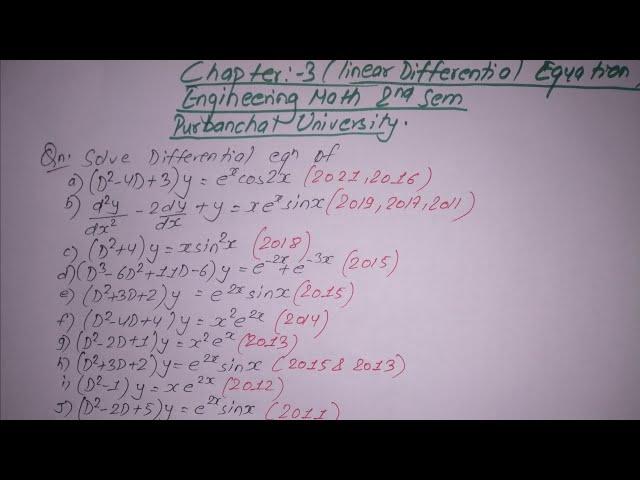 Chapter:-3 (linear Differential Equation)
Engineering Math 2nd Sem
Purbanchal University.
Qn: Solve Differential eqn of
a) (D²-4D+3)y = eˣcos2x (2021,2016)
b) d²y/dx² - 2dy/dx + y = xeˣsinx (2019,2017,2011)
c) (D²+4)y = xsin²x (2018)
d) (D³-6D²+11D-6)y = e⁻²ˣ+e⁻³ˣ (2015)
e) (D²+3D+2)y = e²ˣsinx (2015)
f) (D²-4D+4)y = x²e²ˣ (2014)
g) (D²-2D+1)y = x²eˣ (2013)
h) (D²+3D+2)y = e²ˣsinx (2015 & 2013)
i) (D²-1)y = xe²ˣ (2012)
J) (D²-2D+5)y = e²ˣsinx (2011)